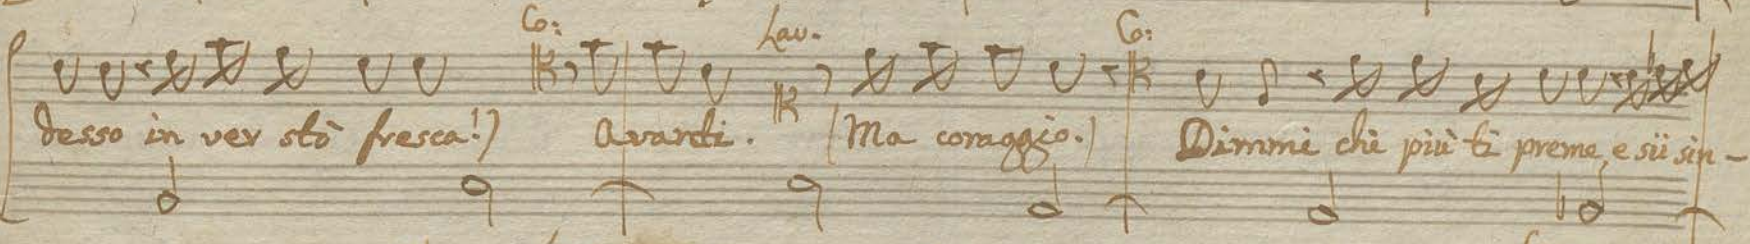 Co: Lav. Co:
desso in ver stò fresca!) avanti. (Ma coraggio.) Dimmi chè più ti preme, e sù sin-